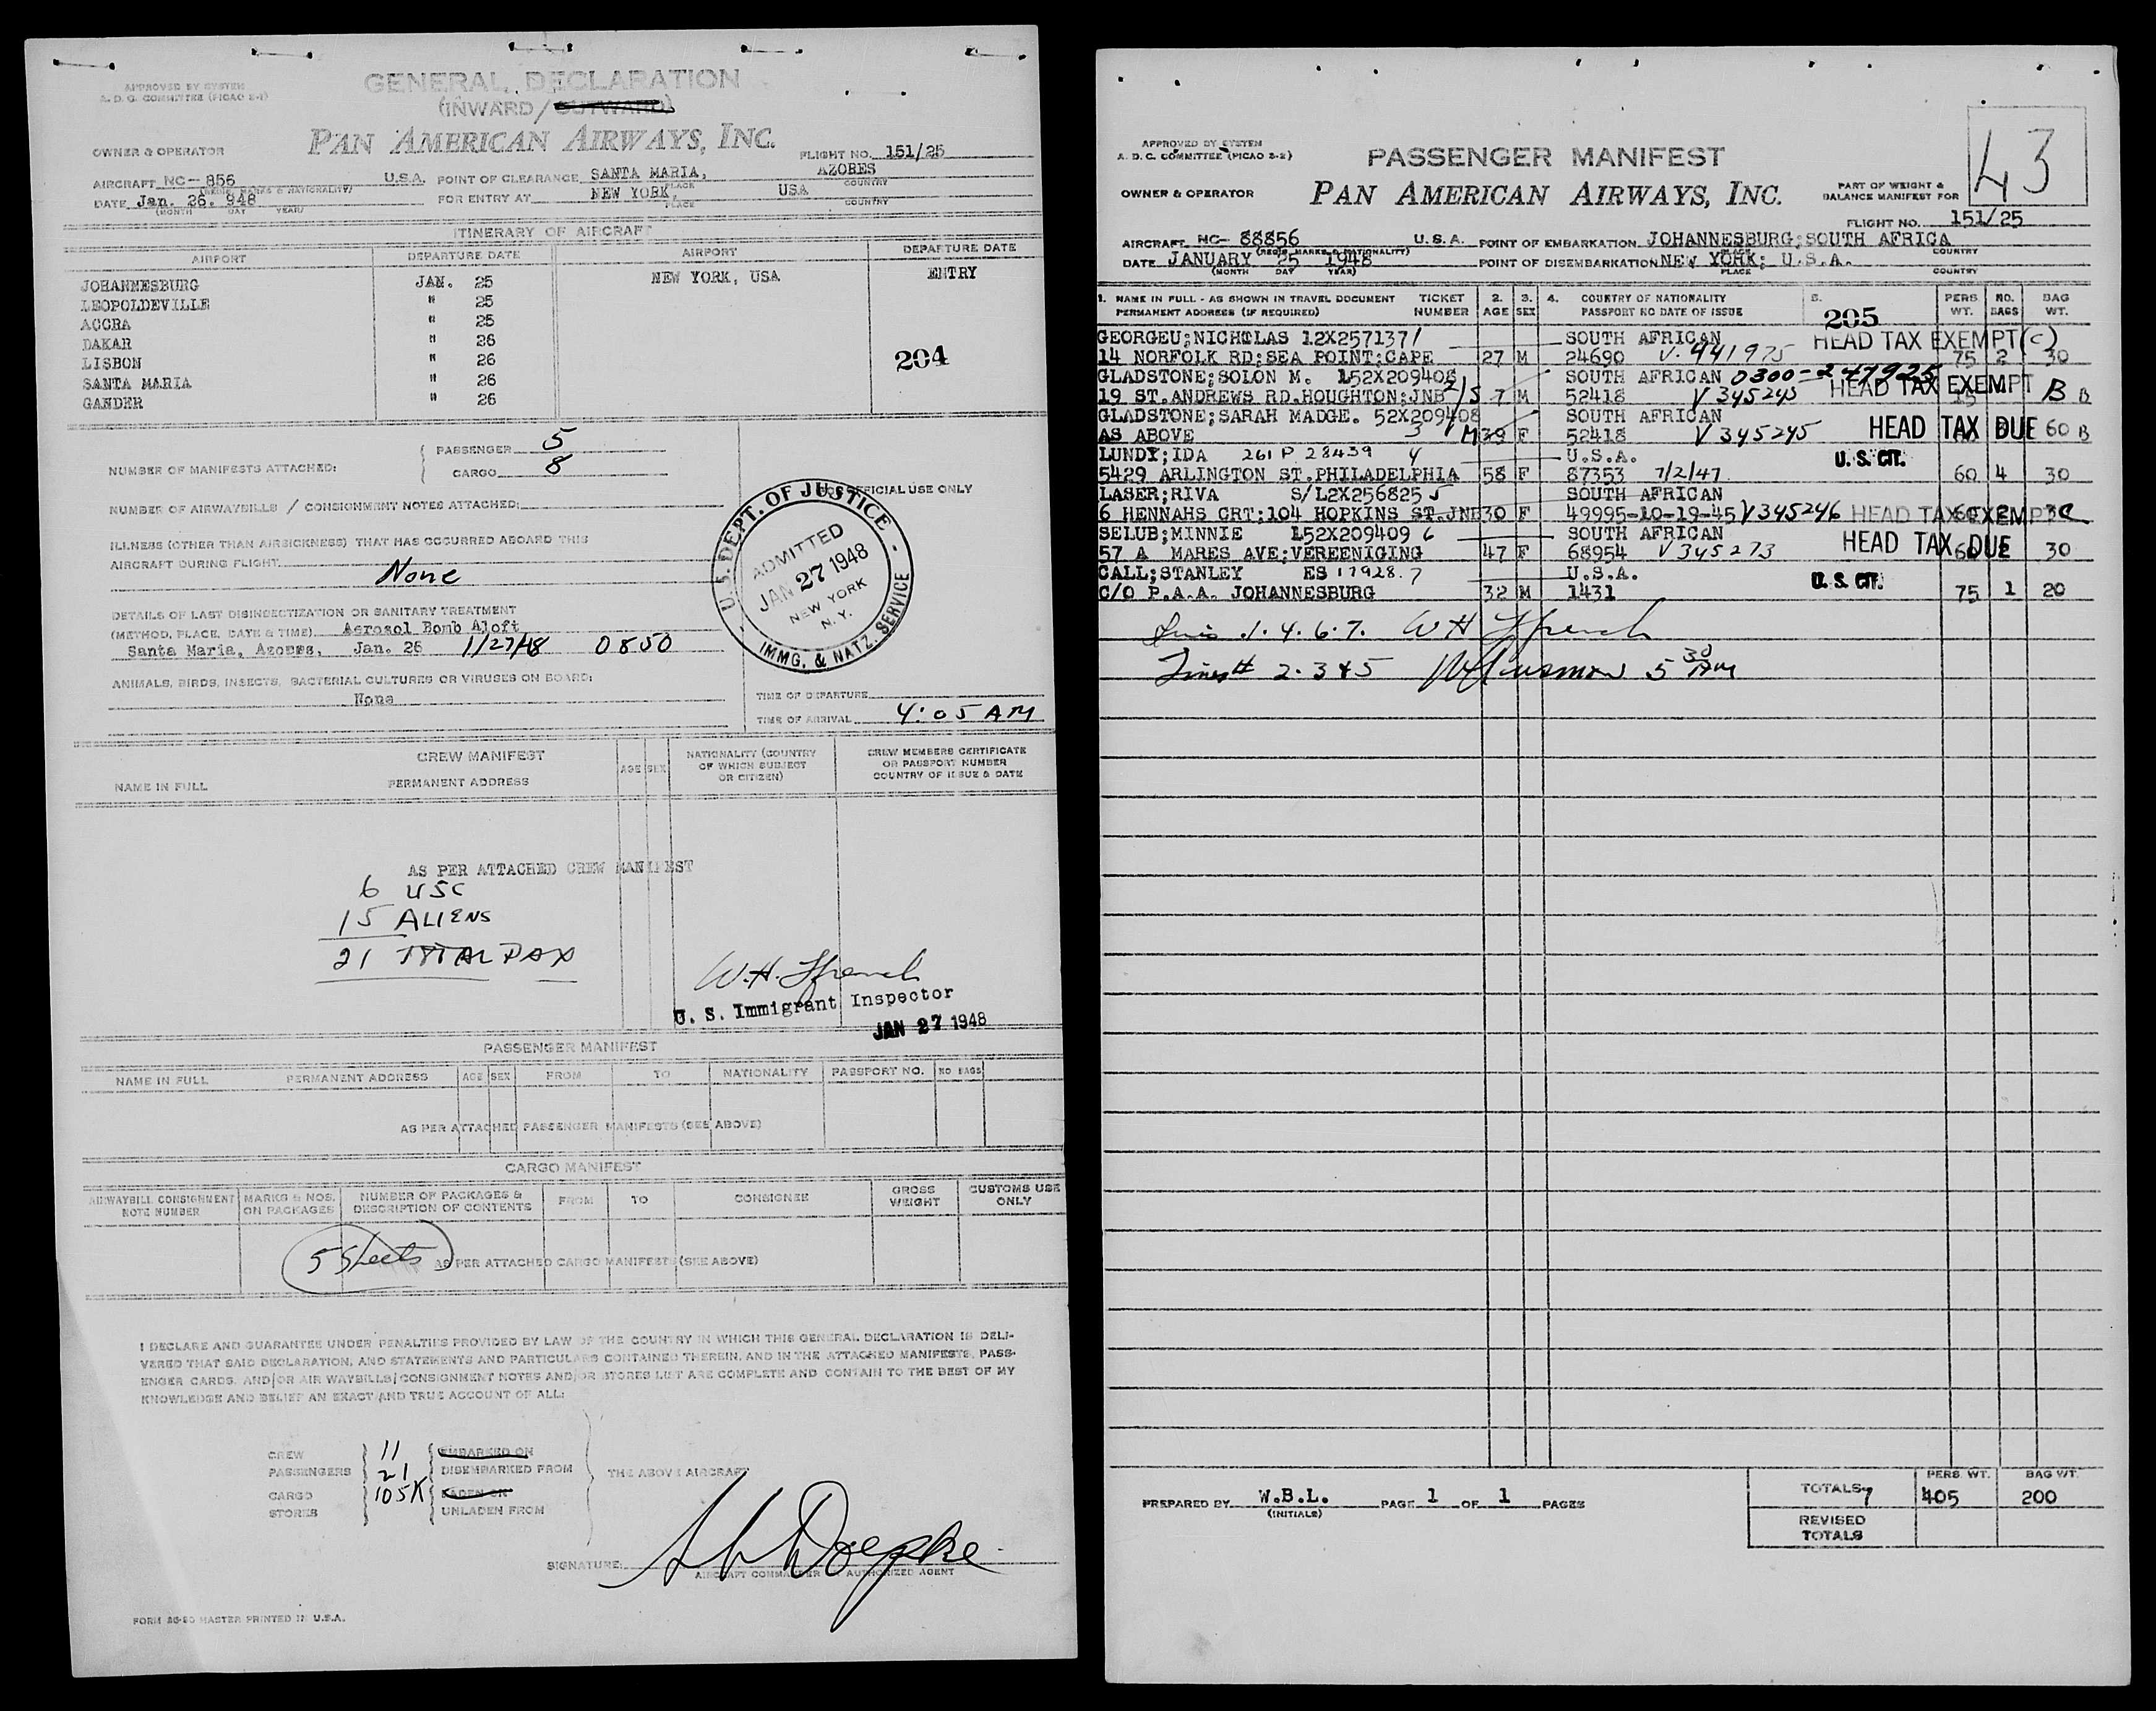 APPROVED BY SYSTEM
A. D. G. COMMITTEE (PICAO S-1)
GENERAL DECLARATION
(INWARD/OUTWARD)
PAN AMERICAN AIRWAYS, INC.
OWNER & OPERATOR
FLIGHT NO. 151/25
AIRCRAFT NC-856 U.S.A. POINT OF CLEARANCE SANTA MARIA, AZORES
(REGIS. MARKS & NATIONALITY) PLACE COUNTRY
DATE Jan. 26. 948 FOR ENTRY AT NEW YORK, USA
(MONTH DAY YEAR) PLACE COUNTRY
ITINERARY OF AIRCRAFT
AIRPORT DEPARTURE DATE AIRPORT DEPARTURE DATE
JOHANNESBURG JAN. 25 NEW YORK, USA ENTRY
LEOPOLDEVILLE " 25
ACCRA " 25
DAKAR " 26
LISBON " 26 204
SANTA MARIA " 26
GANDER " 26
NUMBER OF MANIFESTS ATTACHED: PASSENGER 5
CARGO 8
NUMBER OF AIRWAYBILLS / CONSIGNMENT NOTES ATTACHED:
FOR OFFICIAL USE ONLY
ILLNESS (OTHER THAN AIRSICKNESS) THAT HAS OCCURRED ABOARD THIS
AIRCRAFT DURING FLIGHT None
U.S. DEPT. OF JUSTICE
ADMITTED
JAN 27 1948
NEW YORK
N. Y.
IMMG. & NATZ. SERVICE
DETAILS OF LAST DISINSECTIZATION OR SANITARY TREATMENT
(METHOD, PLACE, DATE & TIME) Aerosol Bomb Aloft
Santa Maria, Azores, Jan. 26 1/27/48 0850
ANIMALS, BIRDS, INSECTS, BACTERIAL CULTURES OR VIRUSES ON BOARD:
None
TIME OF DEPARTURE
TIME OF ARRIVAL 4:05 AM
CREW MANIFEST
NAME IN FULL PERMANENT ADDRESS AGE SEX NATIONALITY (COUNTRY OF WHICH SUBJECT OR CITIZEN) CREW MEMBERS CERTIFICATE OR PASSPORT NUMBER COUNTRY OF ISSUE & DATE
AS PER ATTACHED CREW MANIFEST
6 USC
15 ALIENS
21 TOTAL PAX
W.H. Ffrench
U. S. Immigrant Inspector
JAN 27 1948
PASSENGER MANIFEST
NAME IN FULL PERMANENT ADDRESS AGE SEX FROM TO NATIONALITY PASSPORT NO. NO BAGS
AS PER ATTACHED PASSENGER MANIFESTS (SEE ABOVE)
CARGO MANIFEST
AIRWAYBILL CONSIGNMENT NOTE NUMBER MARKS & NOS. ON PACKAGES NUMBER OF PACKAGES & DESCRIPTION OF CONTENTS FROM TO CONSIGNEE GROSS WEIGHT CUSTOMS USE ONLY
5 Sheets AS PER ATTACHED CARGO MANIFESTS (SEE ABOVE)
I DECLARE AND GUARANTEE UNDER PENALTIES PROVIDED BY LAW OF THE COUNTRY IN WHICH THIS GENERAL DECLARATION IS DELI-
VERED THAT SAID DECLARATION, AND STATEMENTS AND PARTICULARS CONTAINED THEREIN, AND IN THE ATTACHED MANIFESTS, PASS-
ENGER CARDS, AND/OR AIR WAYBILLS/CONSIGNMENT NOTES AND/OR STORES LIST ARE COMPLETE AND CONTAIN TO THE BEST OF MY
KNOWLEDGE AND BELIEF AN EXACT AND TRUE ACCOUNT OF ALL:
CREW 11 EMBARKED ON
PASSENGERS 21 DISEMBARKED FROM THE ABOVE AIRCRAFT
CARGO 105K LADEN ON
STORES UNLADEN FROM
SIGNATURE: Doepke
AIRCRAFT COMMANDER AUTHORIZED AGENT
FORM SG-50 MASTER PRINTED IN U.S.A.
APPROVED BY SYSTEM
A. D. C. COMMITTEE (PICAO S-2)
PASSENGER MANIFEST
43
OWNER & OPERATOR PAN AMERICAN AIRWAYS, INC.
PART OF WEIGHT & BALANCE MANIFEST FOR
FLIGHT NO. 151/25
AIRCRAFT NC- 88856 U.S.A. POINT OF EMBARKATION JOHANNESBURG;SOUTH AFRICA
(REGIS. MARKS & NATIONALITY) PLACE COUNTRY
DATE JANUARY 25 1948 POINT OF DISEMBARKATION NEW YORK; U.S.A.
(MONTH DAY YEAR) PLACE COUNTRY
1. NAME IN FULL - AS SHOWN IN TRAVEL DOCUMENT TICKET 2. 3. 4. COUNTRY OF NATIONALITY 5. PERS NO. BAG
PERMANENT ADDRESS (IF REQUIRED) NUMBER AGE SEX PASSPORT NO DATE OF ISSUE 205 WT. BAGS WT.
GEORGEU;NICHTLAS 12X257137 1 SOUTH AFRICAN HEAD TAX EXEMPT (C)
14 NORFOLK RD;SEA POINT;CAPE 27 M 24690 V. 441975 75 2 30
GLADSTONE;SOLON M. L52X209408 SOUTH AFRICAN 0300-247925
19 ST.ANDREWS RD.HOUGHTON;JNB 2/S 7 M 52418 V 345245 HEAD TAX EXEMPT B B
GLADSTONE;SARAH MADGE. 52X209408 SOUTH AFRICAN
AS ABOVE 3 M 39 F 52418 V 345245 HEAD TAX DUE 60 B
LUNDY;IDA 261 P 28439 4 U.S.A. U.S. CIT.
5429 ARLINGTON ST.PHILADELPHIA 58 F 87353 7/2/47 60 4 30
LASER;RIVA S/L2X256825 5 SOUTH AFRICAN
6 HENNAHS CRT;104 HOPKINS ST.JNB 30 F 49995-10-19-45 V345246 HEAD TAX EXEMPT C
SELUB;MINNIE L52X209409 6 SOUTH AFRICAN
57 A MARES AVE;VEREENIGING 47 F 68954 V 345273 HEAD TAX DUE 60 2 30
CALL;STANLEY ES 17928. 7 U.S.A. U.S. CIT.
C/O P.A.A. JOHANNESBURG 32 M 1431 75 1 20
Lines 1. 4. 6. 7. W H Ffrench
Lines # 2. 3 & 5 5 30 AM
PREPARED BY W.B.L. PAGE 1 OF 1 PAGES
(INITIALS)
PERS. WT. BAG WT.
TOTALS 7 405 200
REVISED TOTALS